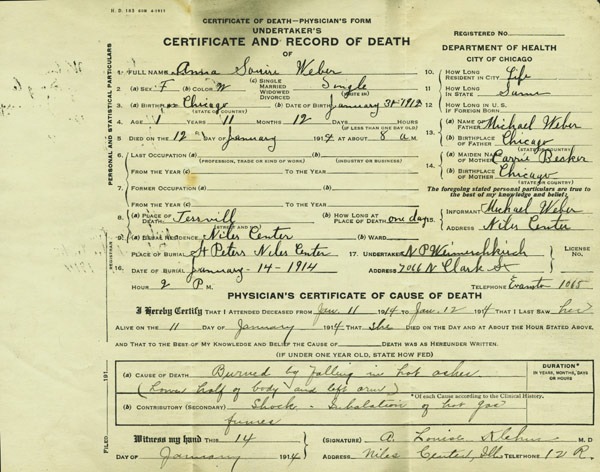 H. D. 163
CERTIFICATE OF DEATH—PHYSICIAN'S FORM
UNDERTAKER'S
CERTIFICATE AND RECORD OF DEATH
OF
REGISTERED NO.
DEPARTMENT OF HEALTH
CITY OF CHICAGO
PERSONAL AND STATISTICAL PARTICULARS
1. FULL NAME Anna Louise Weber
2. (a) SEX F (b) COLOR W (c) SINGLE MARRIED WIDOWED DIVORCED Single
3. (a) BIRTHPLACE Chicago (b) DATE OF BIRTH January 31st 1912
(STATE OR COUNTRY)
4. AGE 1 YEARS 11 MONTHS 12 DAYS HOURS
(IF LESS THAN ONE DAY OLD)
5. DIED ON THE 12 DAY OF January 1914 AT ABOUT 8 a M.
6. LAST OCCUPATION (a) (b)
(PROFESSION, TRADE OR KIND OF WORK) (INDUSTRY OR BUSINESS)
FROM THE YEAR (c) TO THE YEAR
7. FORMER OCCUPATION (a) (b)
FROM THE YEAR (c) TO THE YEAR
8. (a) PLACE OF DEATH Tessvill (b) HOW LONG AT PLACE OF DEATH one day
(STREET AND NO.)
9. (a) USUAL RESIDENCE Niles Center (b) WARD
PLACE OF BURIAL St Peters Niles Center
16. DATE OF BURIAL January-14-1914
HOUR 2 P. M.
10. HOW LONG RESIDENT IN CITY Life
11. HOW LONG IN STATE Same
12. HOW LONG IN U.S. IF FOREIGN BORN
13. (a) NAME OF FATHER Michael Weber
(b) BIRTHPLACE OF FATHER Chicago
(STATE OR COUNTRY)
14. (a) MAIDEN NAME OF MOTHER Carrie Becker
(b) BIRTHPLACE OF MOTHER Chicago
(STATE OR COUNTRY)
The foregoing stated personal particulars are true to the best of my knowledge and belief.
15. INFORMANT Michael Weber
ADDRESS Niles Center
17. UNDERTAKER N P LICENSE No.
ADDRESS 7066 N Clark St
TELEPHONE Evanston 1065
PHYSICIAN'S CERTIFICATE OF CAUSE OF DEATH
I Hereby Certify THAT I ATTENDED DECEASED FROM Jan. 11 1914 TO Jan. 12 1914 THAT I LAST SAW her
ALIVE ON THE 11 DAY OF January 1914 THAT She DIED ON THE DAY AND AT ABOUT THE HOUR STATED ABOVE,
AND THAT TO THE BEST OF MY KNOWLEDGE AND BELIEF THE CAUSE OF DEATH WAS AS HEREUNDER WRITTEN.
(IF UNDER ONE YEAR OLD, STATE HOW FED)
(a) CAUSE OF DEATH Burned by falling in hot ashes
(Lower half of body and left arm)
DURATION*
IN YEARS, MONTHS, DAYS OR HOURS
*Of each Cause according to the Clinical History.
(b) CONTRIBUTORY (SECONDARY) Shock - Inhalation of hot gas
fumes
FILED 191
REGISTRAR
Witness my hand THIS 14
DAY OF January 1914
(SIGNATURE) A. Louise M. D
ADDRESS Niles Center, Ills TELEPHONE 12 R.